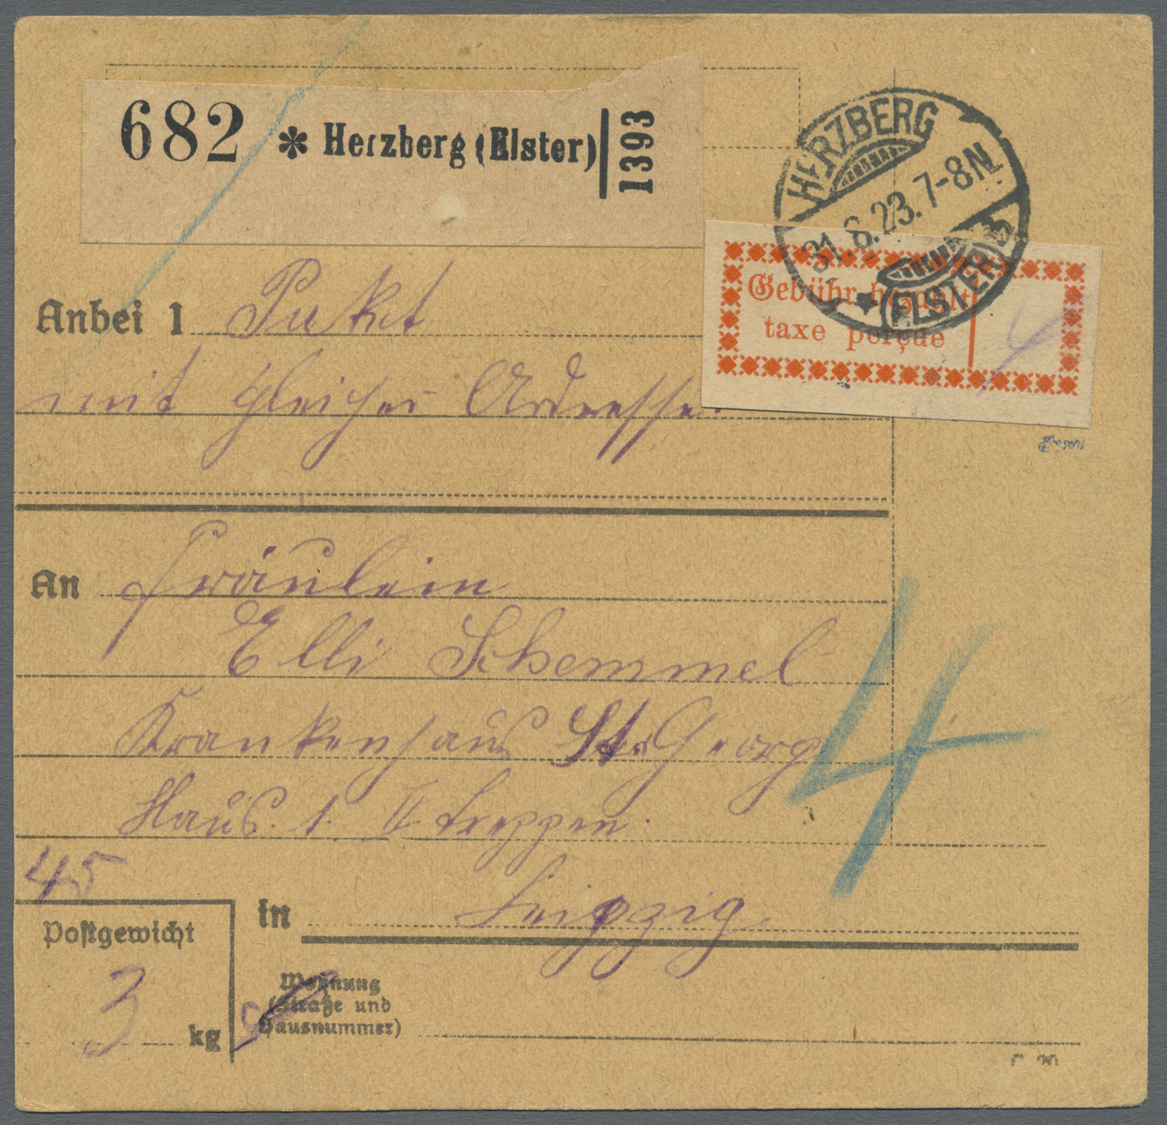 682 * Herzberg (Elster) 1393
HERZBERG
31.8.23.7-8N.
* (ELSTER) b
Gebühr bezahlt
taxe perçue
Anbei 1 Paket
mit gleicher Adresse.
An Fräulein
Elli Schemmel
Krankenhaus St. Georg
Haus. 1. II Treppen.
45
in Leipzig.
Postgewicht
3 kg
Wohnung
(Straße und
Hausnummer)
4